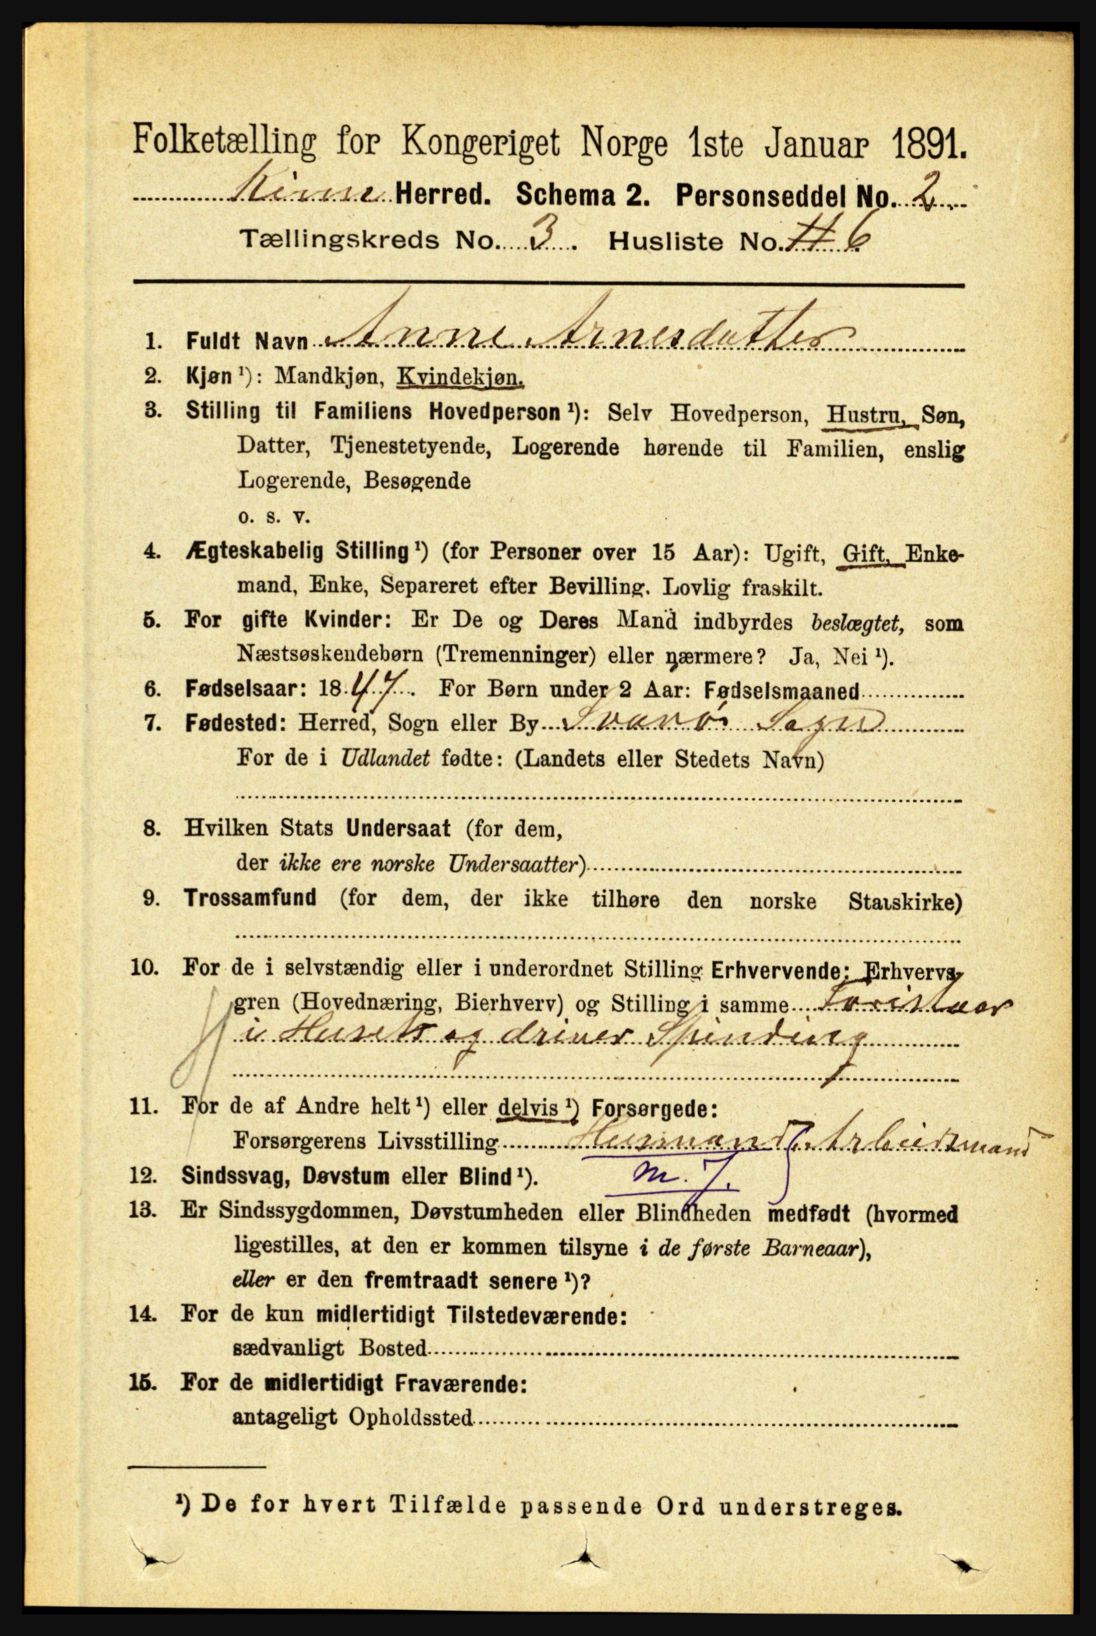 Folketælling for Kongeriget Norge 1ste Januar 1891.
Kinn Herred. Schema 2. Personseddel No. 2.
Tællingskreds No. 3. Husliste No. 6
1. Fuldt Navn Anne Arnesdatter
2. Kjøn ¹): Mandkjøn, Kvindekjøn.
3. Stilling til Familiens Hovedperson ¹): Selv Hovedperson, Hustru, Søn,
Datter, Tjenestetyende, Logerende hørende til Familien, enslig
Logerende, Besøgende
o. s. v.
4. Ægteskabelig Stilling ¹) (for Personer over 15 Aar): Ugift, Gift, Enke-
mand, Enke, Separeret efter Bevilling. Lovlig fraskilt.
5. For gifte Kvinder: Er De og Deres Mand indbyrdes beslægtet, som
Næstsøskendebørn (Tremenninger) eller nærmere? Ja, Nei ¹).
6. Fødselsaar: 1847. For Børn under 2 Aar: Fødselsmaaned
7. Fødested: Herred, Sogn eller By Svanø Sogn
For de i Udlandet fødte: (Landets eller Stedets Navn)
8. Hvilken Stats Undersaat (for dem,
der ikke ere norske Undersaatter)
9. Trossamfund (for dem, der ikke tilhøre den norske Statskirke)
10. For de i selvstændig eller i underordnet Stilling Erhvervende: Erhvervs-
gren (Hovednæring, Bierhverv) og Stilling i samme Forestaar
i Huset og driver Spinding
11. For de af Andre helt ¹) eller delvis ¹) Forsørgede:
Forsørgerens Livsstilling Husmand, Arbeidsmand
12. Sindssvag, Døvstum eller Blind ¹). m. J.
13. Er Sindssygdommen, Døvstumheden eller Blindheden medfødt (hvormed
ligestilles, at den er kommen tilsyne i de første Barneaar),
eller er den fremtraadt senere ¹)?
14. For de kun midlertidigt Tilstedeværende:
sædvanligt Bosted
15. For de midlertidigt Fraværende:
antageligt Opholdssted
¹) De for hvert Tilfælde passende Ord understreges.